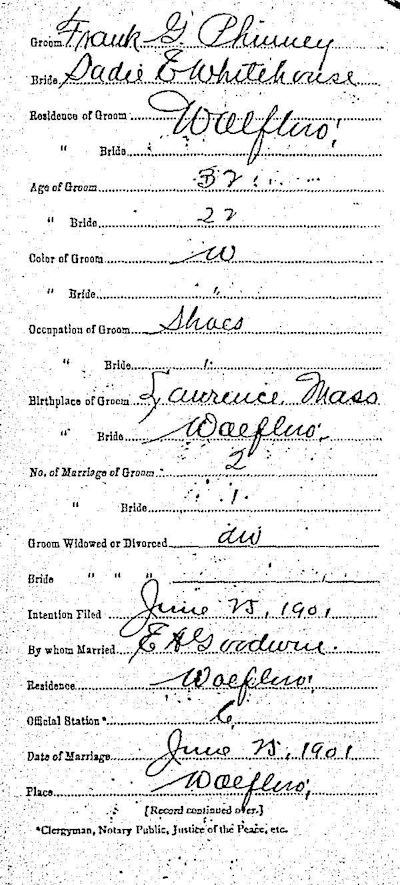 Groom Frank G Phinney
Bride Sadie E Whitehouse
Residence of Groom Wolfboro,
" Bride "
Age of Groom 32
" Bride 22
Color of Groom W
" Bride "
Occupation of Groom Shoes
" Bride
Birthplace of Groom Lawrence Mass
" Bride Wolfboro,
No. of Marriage of Groom 2
" Bride 1
Groom Widowed or Divorced div
Bride " " "
Intention Filed June 25, 1901
By whom Married E H Goodwin.
Residence Wolfboro,
Official Station* C
Date of Marriage June 25, 1901
Place Wolfboro,
[Record continued over.]
*Clergyman, Notary Public, Justice of the Peace, etc.